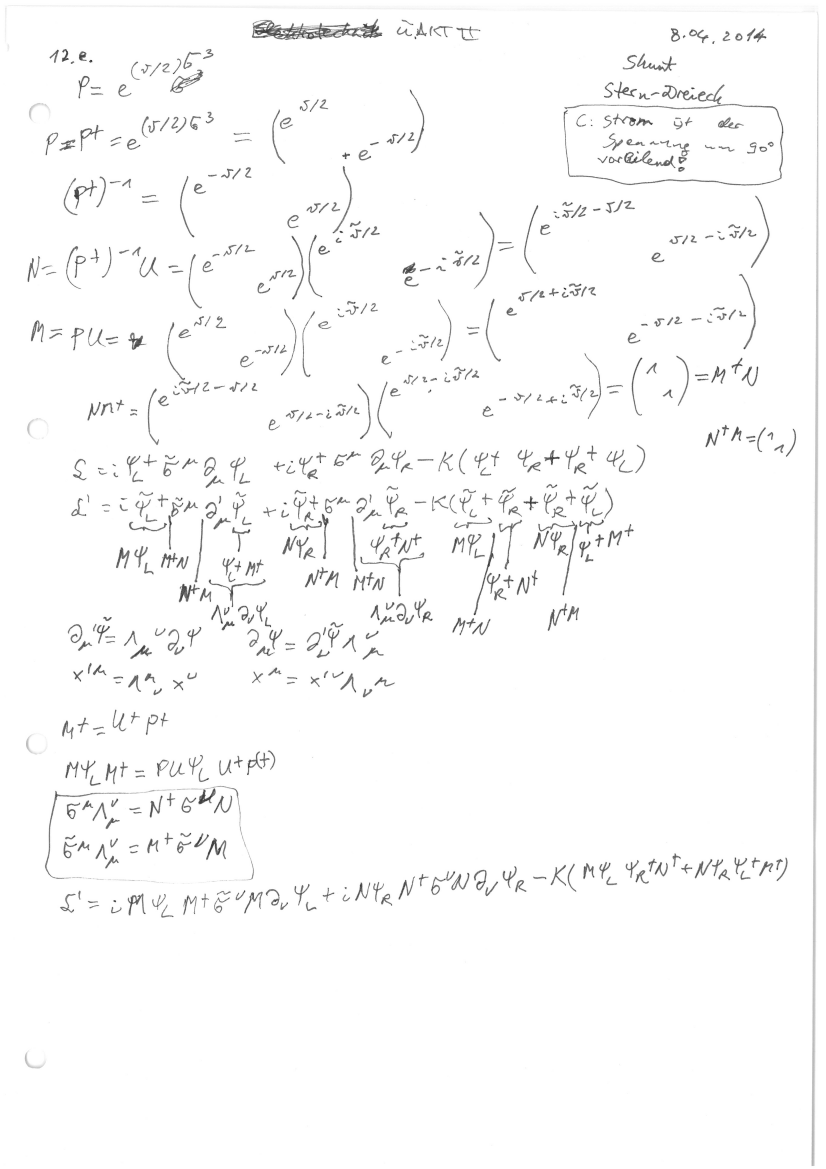 ÜAKT II
8.04.2014
12.e.
P = e^{(ϑ/2)σ³}
Shunt
Stern-Dreieck
C: Strom ist der
Spannung um 90°
voreilend!
P = P† = e^{(ϑ/2)σ³} = (e^{ϑ/2} + e^{-ϑ/2})
(P†)⁻¹ = (e^{-ϑ/2} e^{ϑ/2})
N = (P†)⁻¹U = (e^{-ϑ/2} e^{ϑ/2})(e^{iϑ̃/2} e^{-iϑ̃/2}) = (e^{iϑ̃/2-ϑ/2} e^{ϑ/2-iϑ̃/2})
M = PU = (e^{ϑ/2} e^{-ϑ/2})(e^{iϑ̃/2} e^{-iϑ̃/2}) = (e^{ϑ/2+iϑ̃/2} e^{-ϑ/2-iϑ̃/2})
NM† = (e^{iϑ̃/2-ϑ/2} e^{ϑ/2-iϑ̃/2})(e^{ϑ/2-iϑ̃/2} e^{-ϑ/2+iϑ̃/2}) = (1 1) = M†N
N†M = (1 1)
ℒ = iψ_L† σ̃^μ ∂_μ ψ_L + iψ_R† σ^μ ∂_μ ψ_R - K(ψ_L† ψ_R + ψ_R† ψ_L)
ℒ' = i ψ̃_L† σ̃^μ ∂'_μ ψ̃_L + i ψ̃_R† σ^μ ∂'_μ ψ̃_R - K(ψ̃_L† ψ̃_R + ψ̃_R† ψ̃_L)
Mψ_L M†N ψ_L†M† Nψ_R N†M M†N ψ_R†N† Mψ_L ψ_R†N† Nψ_R ψ_L†M†
N†M Λ_μ^ν ∂_ν ψ_L Λ_μ^ν ∂_ν ψ_R M†N N†M
∂'_μ ψ̃ = Λ_μ^ν ∂_ν ψ ∂_μ ψ = ∂'_ν ψ̃ Λ^ν_μ
x'^μ = Λ^μ_ν x^ν x^μ = x'^ν Λ_ν^μ
M† = U† P†
Mψ_L M† = PUψ_L U† P(†)
σ^μ Λ_μ^ν = N† σ^ν N
σ̃^μ Λ_μ^ν = M† σ̃^ν M
ℒ' = i Mψ_L M† σ̃^ν M ∂_ν ψ_L + i Nψ_R N† σ^ν N ∂_ν ψ_R - K(Mψ_L ψ_R†N† + Nψ_R ψ_L†M†)